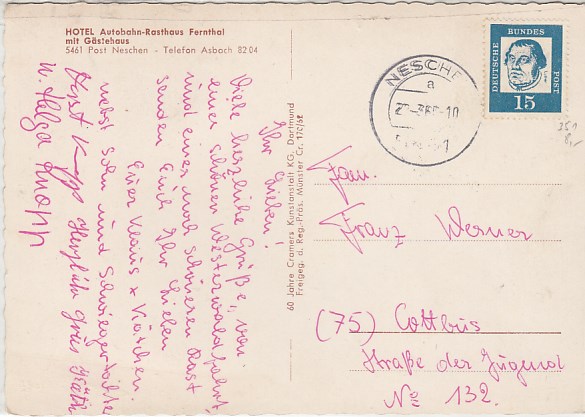 HOTEL Autobahn-Rasthaus Fernthal
mit Gästehaus
5461 Post Neschen - Telefon Asbach 82 04
Ihr Lieben!
Viele herzliche Grüße, von
einer schönen Westerwaldfahrt
und einer noch schöneren Rast
senden Euch Ihr Lieben
Eure Klaus + Käthchen.
nebst Sohn und Schwiegertochter
Horst Knopp Herzlichen Gruß Käthi
u. Helga Knopp
60 Jahre Cramers Kunstanstalt KG, Dortmund
Freigeg. d. Reg.-Präs. Münster Cr. 170/62
NESCHE
a
-10
DEUTSCHE BUNDES POST
15
Fam.
Franz Werner
(75) Cottbus
Straße der Jugend
No 132.